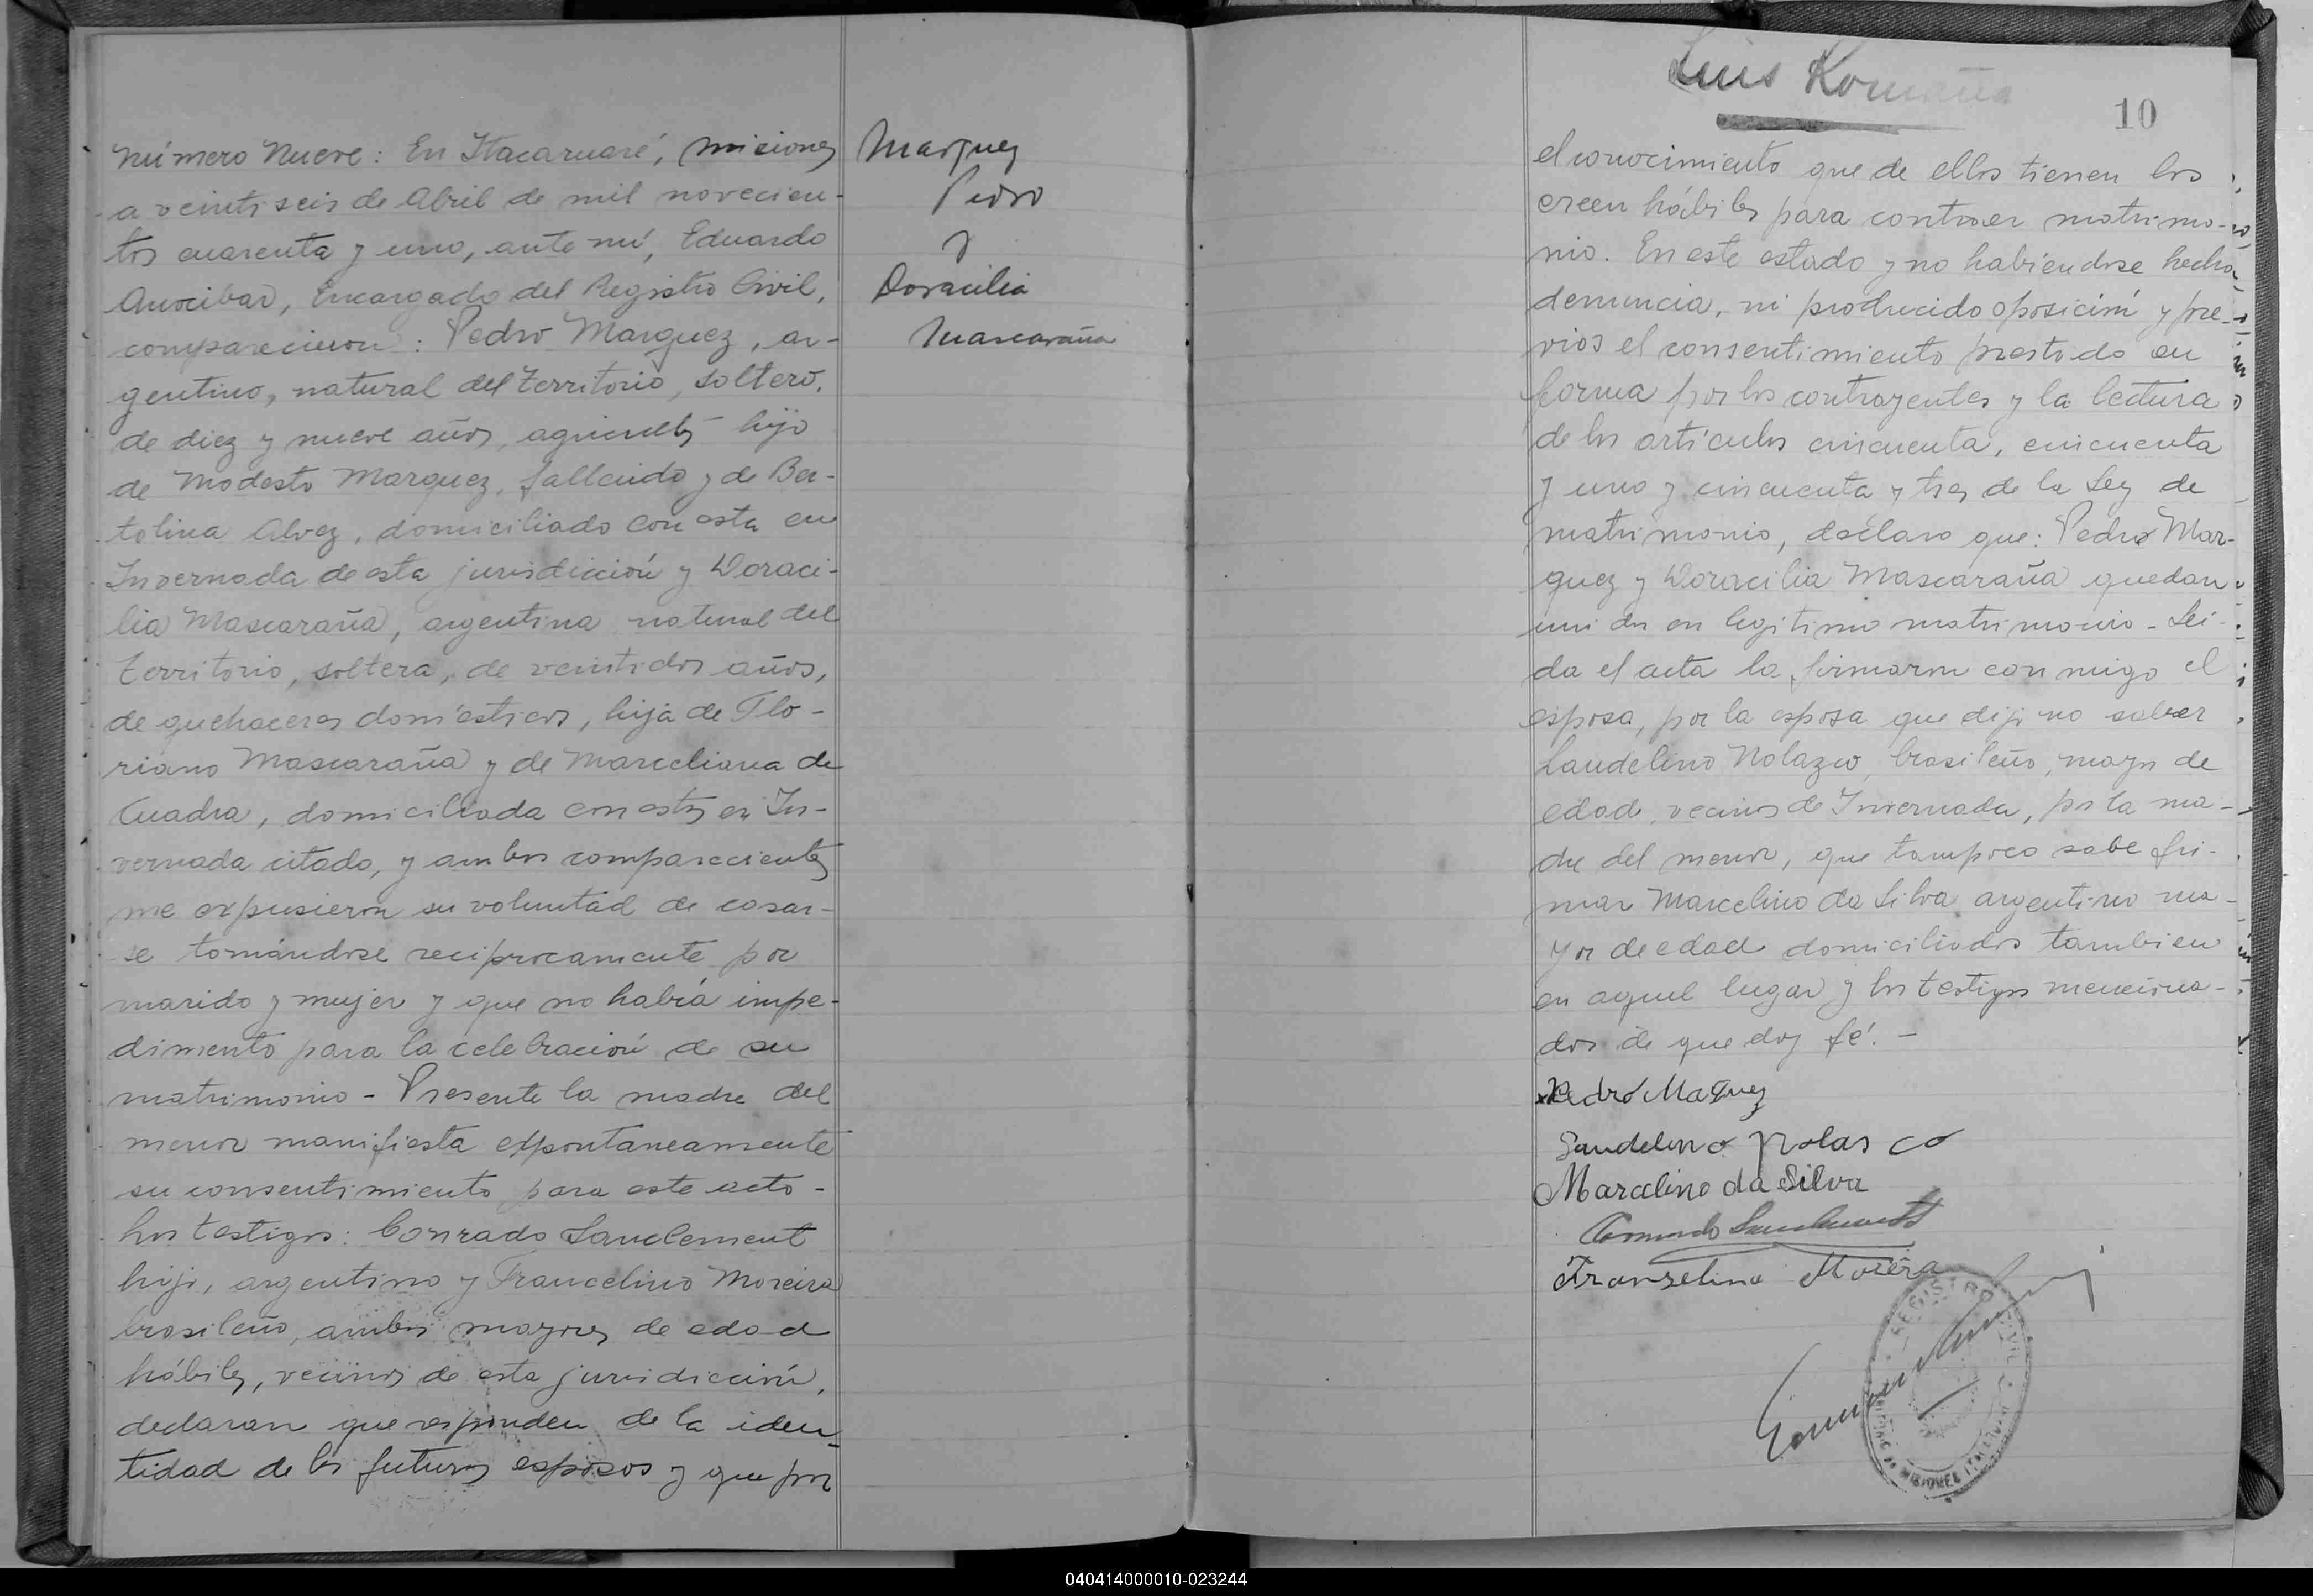 Número Nueve: En Itacaruaré, Misiones
a veinti seis de Abril de mil novecien-
tos cuarenta y uno, ante mí, Eduardo
Encargado del Registro Civil,
comparecieron: Pedro Marquez, ar-
gentino, natural del territorio, soltero,
de diez y nueve años, hijo
de Modesto Marquez, fallecido y de Ber-
tolina Alvez, domiciliado con esta en
Invernada de esta jurisdicción y Doraci-
lia Mascaraña, argentina natural del
territorio, soltera, de veintidos años,
de quehaceres domésticos, hija de Flo-
riano Mascaraña y de Marceliana de
Cuadra, domiciliada con estos en In-
vernada citado, y ambos comparecientes
me expusieron su voluntad de casar-
se tomándose reciprocamente por
marido y mujer y que no había impe-
dimento para la celebración de su
matrimonio - Presente la madre del
menor manifiesta espontaneamente
su consentimiento para este acto -
Los testigos: Conrado Sanclement
hijo, argentino y Francelino Moreira
brasileño, ambos mayores de edad
hábiles, vecinos de esta jurisdicción,
declaran que responden de la iden-
tidad de los futuros esposos y que por
Marquez
Pedro
y
Doracilia
Mascaraña
Luis Romaña
10
el conocimiento que de ellos tienen los
creen hábiles para contraer matrimo-
nio. En este estado y no habiendose hecho
denuncia, ni producido oposición y pre-
vios el consentimiento prestado en
forma por los contrayentes y la lectura
de los artículos cincuenta, cincuenta
y uno y cincuenta y tres de la Ley de
matrimonio, declaro que: Pedro Mar-
quez y Doracilia Mascaraña quedan
unidos en legitimo matrimonio - Leí-
da el acta la firmaron conmigo el
esposo, por la esposa que dijo no saber
Laudelino Nolazco, brasileño, mayor de
edad, vecino de Invernada, por la ma-
dre del menor, que tampoco sabe fir-
mar Marcelino da Silva argentino ma-
yor de edad domiciliados tambien
en aquel lugar y los testigos menciona-
dos de que doy fé. -
Pedro Maquez
Laudelino Nolasco
Marcelino da Silva
Conrado Sanclement
Franzelino Morêra
REGISTRO CIVIL
MISIONES